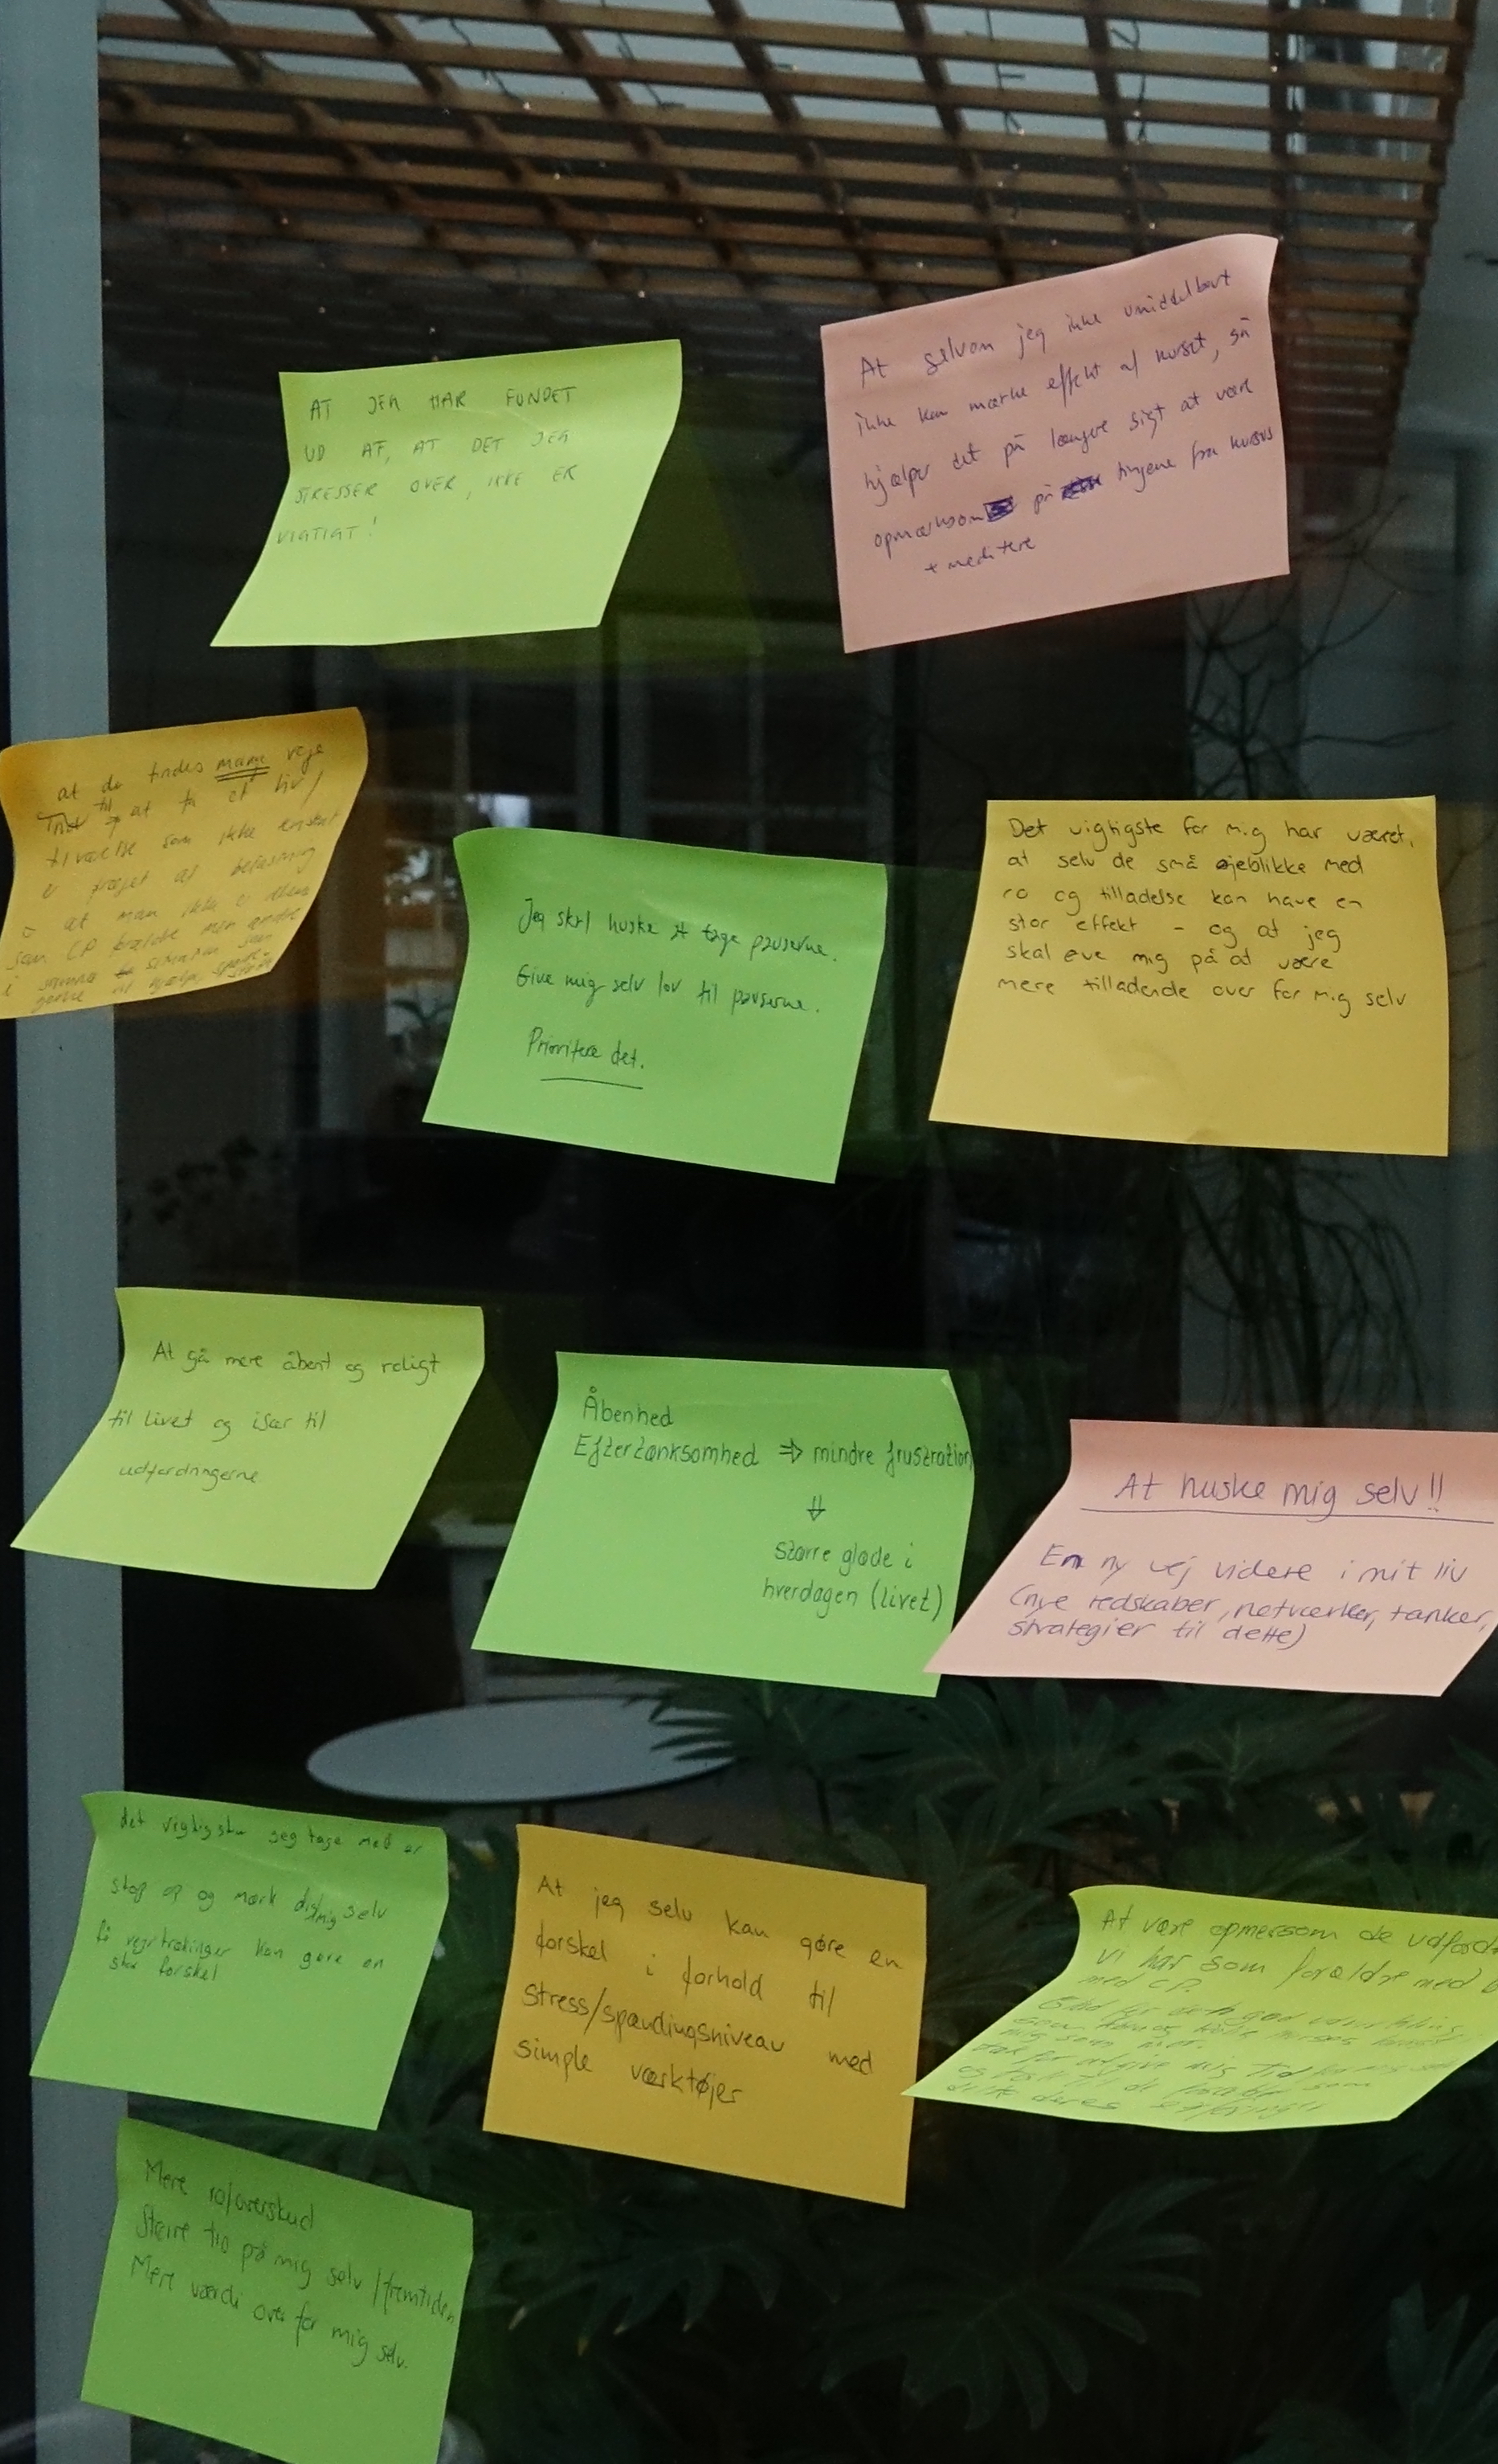 AT JEG HAR FUNDET
UD AF, AT DET JEG
STRESSER OVER, IKKE ER
VIGTIGT!
At selvom jeg ikke umiddelbart
ikke kan mærke effekt af kurset, så
hjælper det på længere sigt at være
opmærksom på tingene fra kursus
+ meditere
at der findes mange veje
til at få et liv/
tilværelse som ikke konstant
er præget af belastning
at man ikke er alene
som CP forælder men andre
i samme situation som
Jeg skal huske at tage pauserne.
Give mig selv lov til pauserne.
Prioritere det.
Det vigtigste for mig har været,
at selv de små øjeblikke med
ro og tilladelse kan have en
stor effekt - og at jeg
skal øve mig på at være
mere tilladende over for mig selv
At gå mere åbent og roligt
til livet og især til
udfordringerne
Åbenhed
Eftertænksomhed ⇒ mindre frustration
⇓
større glæde i
hverdagen (livet)
At huske mig selv!!
En ny vej videre i mit liv
(nye redskaber, netværker, tanker,
strategier til dette)
det vigtigste jeg tage med er
stop op og mærk dig/mig selv
få vejrtrækninger kan gøre en
stor forskel
At jeg selv kan gøre en
forskel i forhold til
stress/spændingsniveau med
simple værktøjer
At være opmersom de udford
vi har som forældre med b
med CP.
mig som mor.
Tak for at give mig tid for mig selv
og tak til de forældre som
delte deres erfaring
Mere ro/overskud
Større tro på mig selv/fremtiden
Mere værdi over for mig selv.